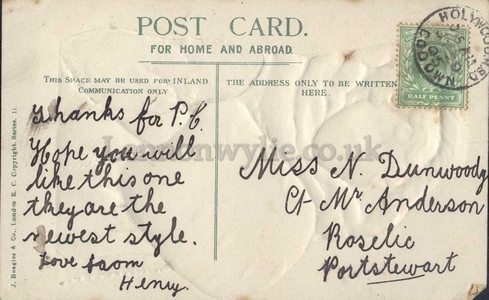 POST CARD.
FOR HOME AND ABROAD.
THIS SPACE MAY BE USED FOR INLAND
COMMUNICATION ONLY
THE ADDRESS ONLY TO BE WRITTEN
HERE.
HALF PENNY
Thanks for P.C.
Hope you will
like this one
they are the
newest style.
Love from
Henry.
Miss N. Dunwoody
Ct- Mr Anderson
Roselic
Portstewart
J. Beagles & Co., London E. C. Copyright. Series. 11.